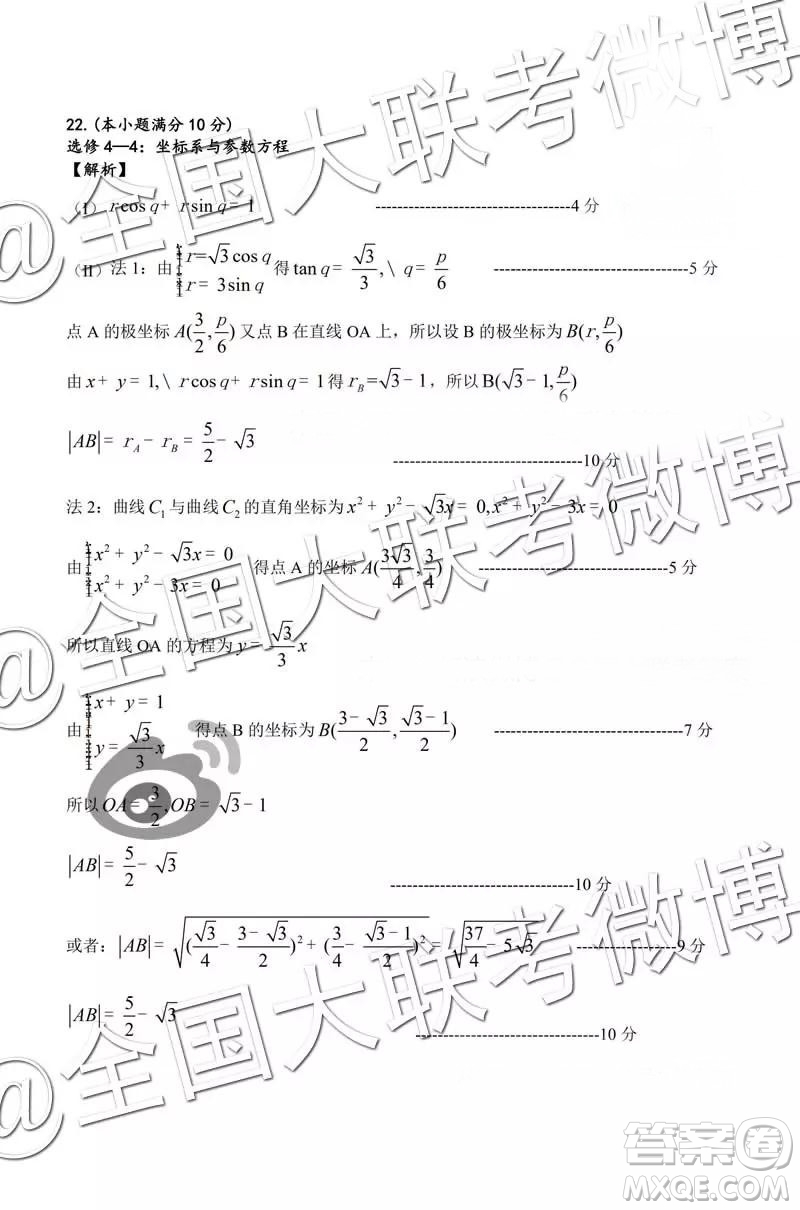 22.(本小题满分10分)
选修4—4：坐标系与参数方程
【解析】
（I）rcos q+ rsin q= 1 -----------------------------------4分
（II）法1：由{r=√3cos q r= 3sin q 得tan q= √3/3,\ q= p/6 -----------------------------------5分
点A的极坐标A(3/2,p/6)又点B在直线OA上，所以设B的极坐标为B(r,p/6)
由x+ y= 1,\ rcos q+ rsin q= 1得r_B=√3-1，所以B(√3-1,p/6)
|AB|= r_A- r_B= 5/2- √3 -----------------------------------10分
法2：曲线C₁与曲线C₂的直角坐标为x²+ y²- √3x= 0,x²+ y²- 3x= 0
由{x²+ y²- √3x= 0 x²+ y²- 3x= 0 得点A的坐标A(3√3/4,3/4) -----------------------------------5分
所以直线OA的方程为y= √3/3 x
由{x+ y= 1 y= √3/3 x 得点B的坐标为B((3- √3)/2,(√3- 1)/2) -----------------------------------7分
所以OA= 3/2,OB= √3-1
|AB|= 5/2- √3 ----------------------------------10分
或者：|AB|= √((√3/4- (3- √3)/2)²+ (3/4- (√3- 1)/2)²)= √(37/4- 5√3) -------------------9分
|AB|= 5/2- √3 ----------------------------------10分
@全国大联考微博
@全国大联考微博
@全国大联考微博
答案卷
MXQE.COM